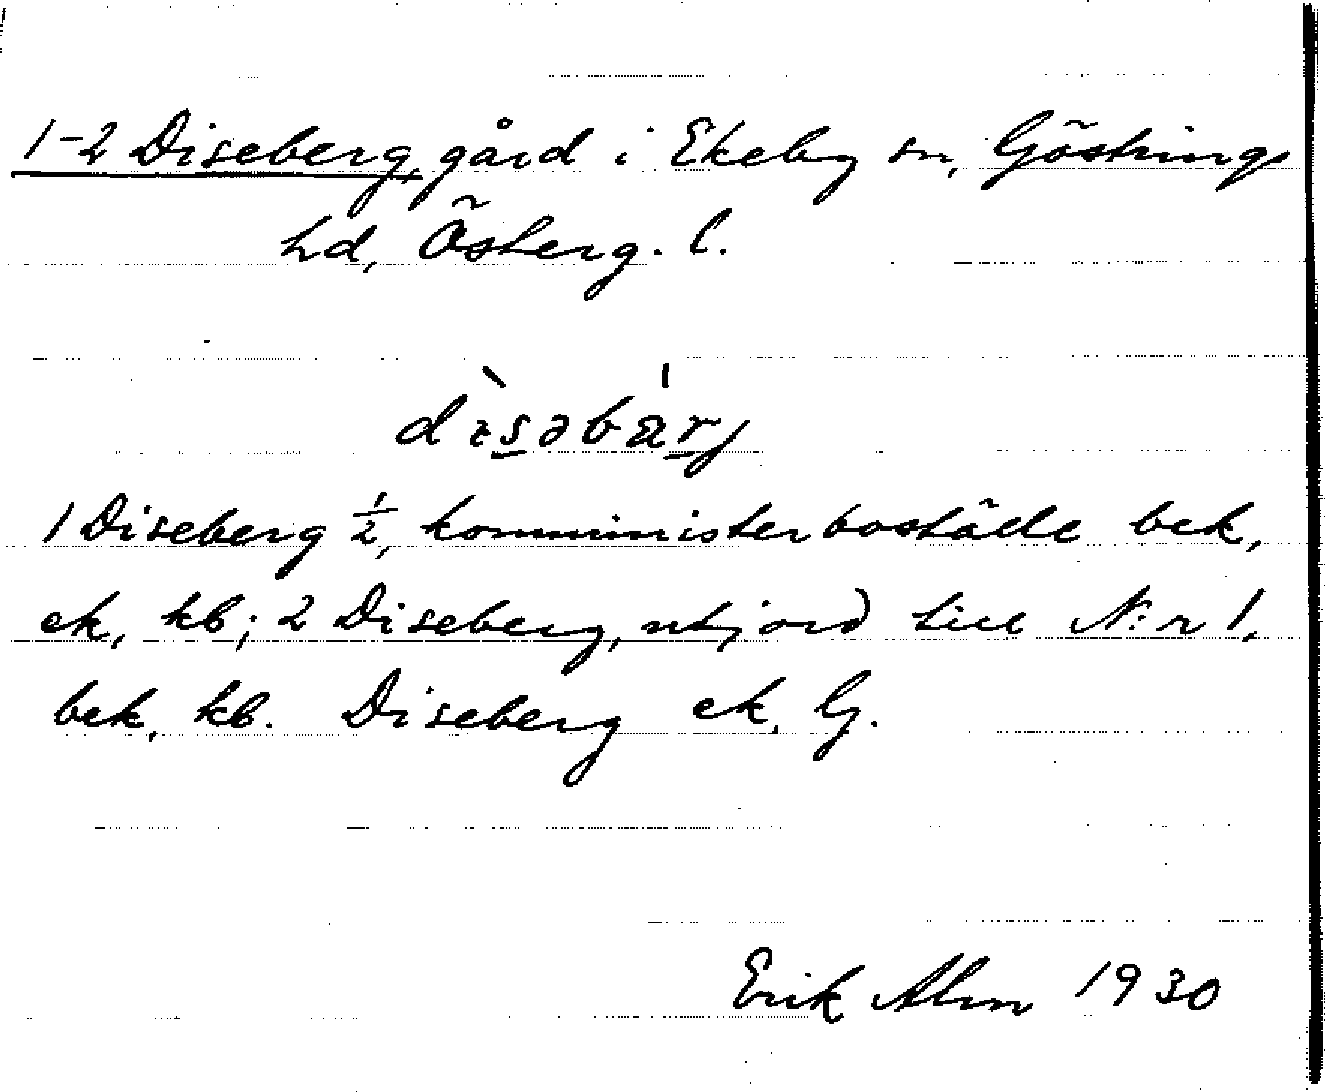 1-2 Diseberg, gård i Ekeby sn, Göstrings
hd, Österg. l.
dɩ̀səbárj
1 Diseberg ½, komministerboställe bek,
ek, kb; 2 Diseberg, utjord till N:r 1.
bek, kb. Diseberg ek, G.
Erik Alm 1930